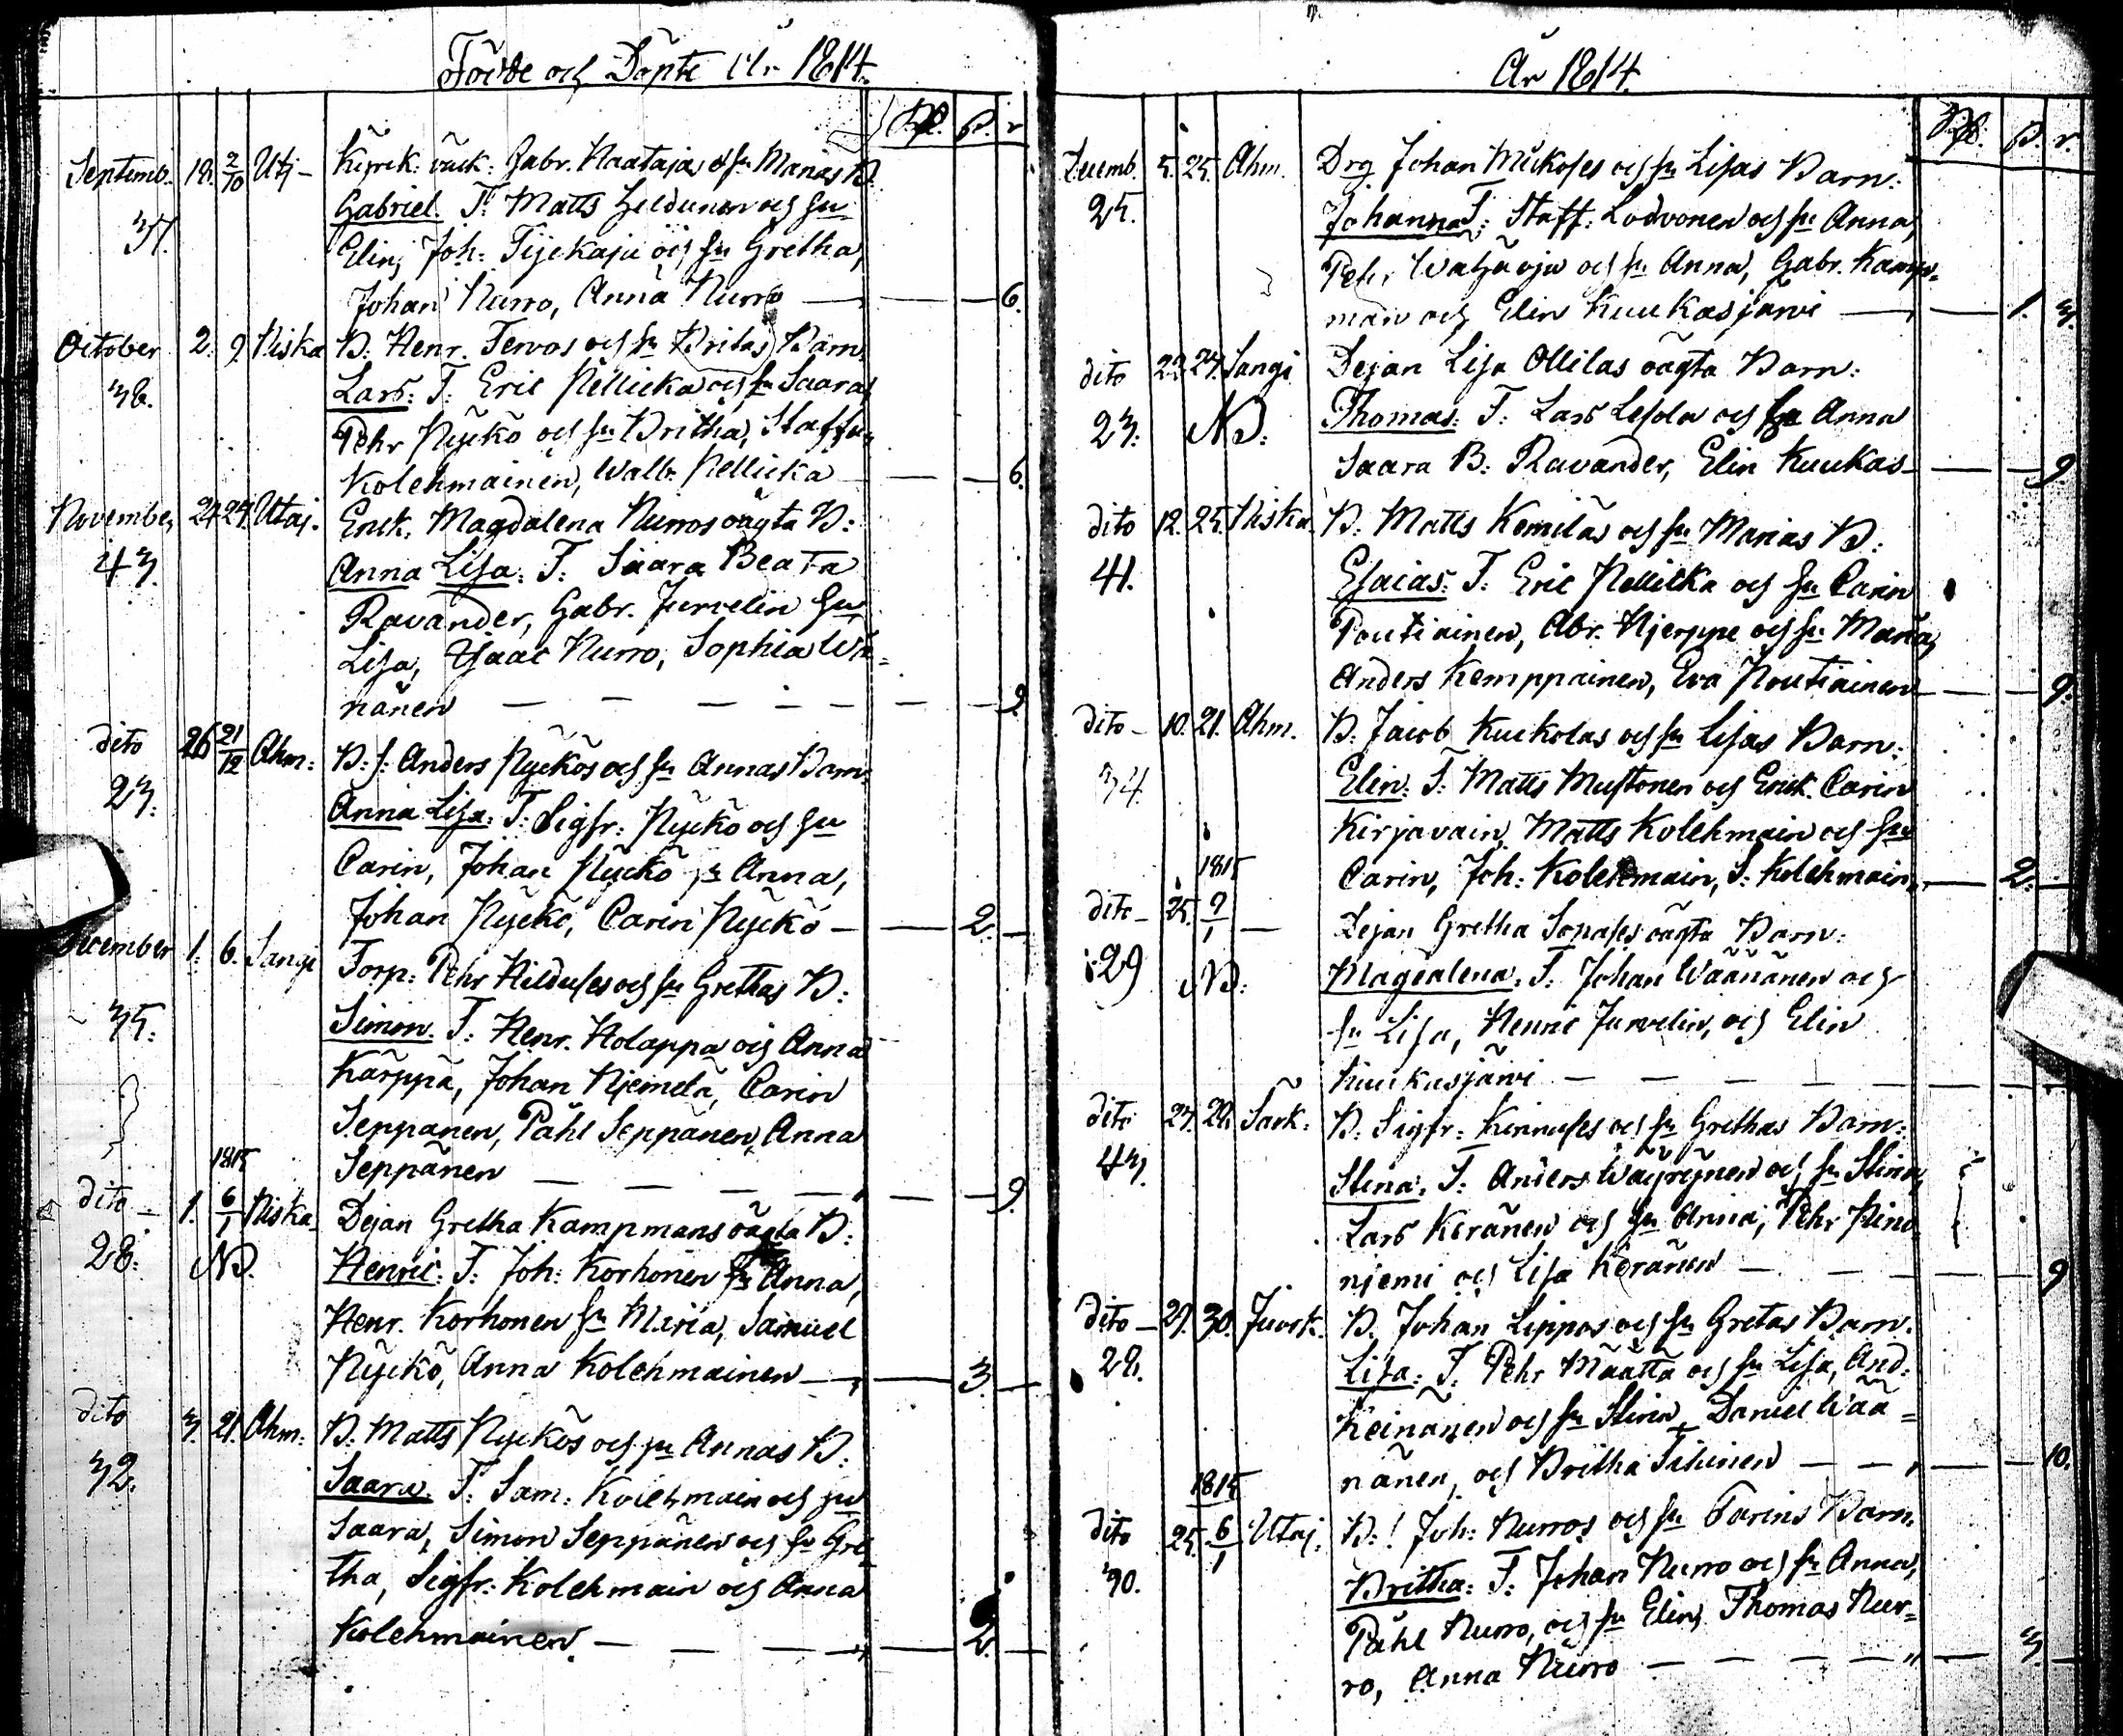 Födde och Döpte År 1814.
Rbl. P. r
Septemb. 18. 2/10 Utj- Kyrk. väck: Gabr. Haatajas o fru Marias B.
37. Gabriel. F: Matts Heldunen och hu
Elin, Joh: och hu Gretha,
Johan Nurro, Anna Nurro — 6.
October 2. 9 Niska B. Henr. Tervos och hu Britas Barn
38. Lars: F: Eric Pellicka och hu Saara
Pehr Nyckö och hu Britha, Staffan
Kolehmainen, Walb. Pellicka — 6.
November 24 27. Utaj. Enck. Magdalena Nurros oägta B:
43. Anna Lisa: F: Saara Beata
Ravander, Gabr. Jurvelin hu
Lisa, Isaac Nurro, Sophia Wä=
nänen — 9
dito 26 21/12 Ahm: B: S: Anders Nyckös och hu Annas Barn
23. Anna Lisa: F: Sigfr: Nyckö och hu
Carin, Johan Nyckö hu Anna,
Johan Nyckö, Carin Nyckö — 2.
December 1. 6. Sangi Torp: Pehr Hilduses och hu Grethas B:
35. Simon: F: Henr. Holappa och Anna
Kärppä, Johan Niemelä, Carin
Seppänen, Påhl Seppänen, Anna
Seppänen — 9.
1815
dito 1. 6/1 Niska Dejan Gretha Kampmans oägta B:
28. NB. Henric: F: Joh: Korhonen hu Anna,
Henr. Korhonen hu Maria, Samuel
Nyckö, Anna Kolehmainen — 3.
dito 3. 21. Ahm: B. Matts Nyckös och hu Annas B:
32. Saara: F: Sam: Kolehmain och hu
Saara, Simon Seppänen och hu Gre
tha, Sigfr: Kolehmain och Anna
Kolehmainen. — 2.
År 1814.
Rbl. P. r.
Decemb. 5. 25. Ahm. Drg Johan Mickoses och hu Lisas Barn:
25. Johanna F: Staff: Lodvonen och hu Anna,
Pehr och hu Anna, Gabr. Kamp=
man och Elin Kuukasjärvi — 1. 3.
dito 22. 27. Sangi Dejan Lisa Ollilas oägta Barn:
23. NB. Thomas: F: Lars Lesola och hu Anna
Saara B: Ravander, Elin Kuukas — 9
dito 12. 25. Niska B. Matts Kemiläs och hu Marias B:
41. Esaias: F: Eric Pellicka och hu Carin
Poutiainen, Abr. Hjerppe och hu Maria,
Anders Kemppainen, Eva Poutiainen — 9.
dito 10. 21. Ahm. B. Jacob Kuckolas och hu Lisas Barn:
34. Elin: F: Matts Mustonen och Enck. Carin
Kirjavain, Matts Kolehmain och hu
Carin, Joh: Kolehmain, S: Kolehmain, — 2.
1815
dito 25. 9/1 — Dejan Gretha oägta Barn:
29 NB. Magdalena: F: Johan Väänänen och
hu Lisa, Henric Jurvelin, och Elin
Kuukasjärvi —
dito 27. 29. Särk: B. Sigfr: Kinnuses och hu Grethas Barn:
43. Stina: F: Anders Wäyrynen och hu Stina,
Lars Keränen och hu Anna, Pehr Nine
njemi och Lisa Keränen — 9
dito 29. 30. Juvok. B. Johan Lippos och hu Gretas Barn.
28. Lisa: F: Pehr Määttä och hu Lisa, And:
Keinänen och hu Stina, Daniel Wää=
nänen, och Britha Tihinen — 10.
1815
dito 25. 6/1 Utaj. B: S Joh: Nurros och hu Carins Barn.
30. Britha: F: Johan Nurro och hu Anna,
Påhl Nurro, och hu Elin, Thomas Nur=
ro, Anna Nurro — 3.